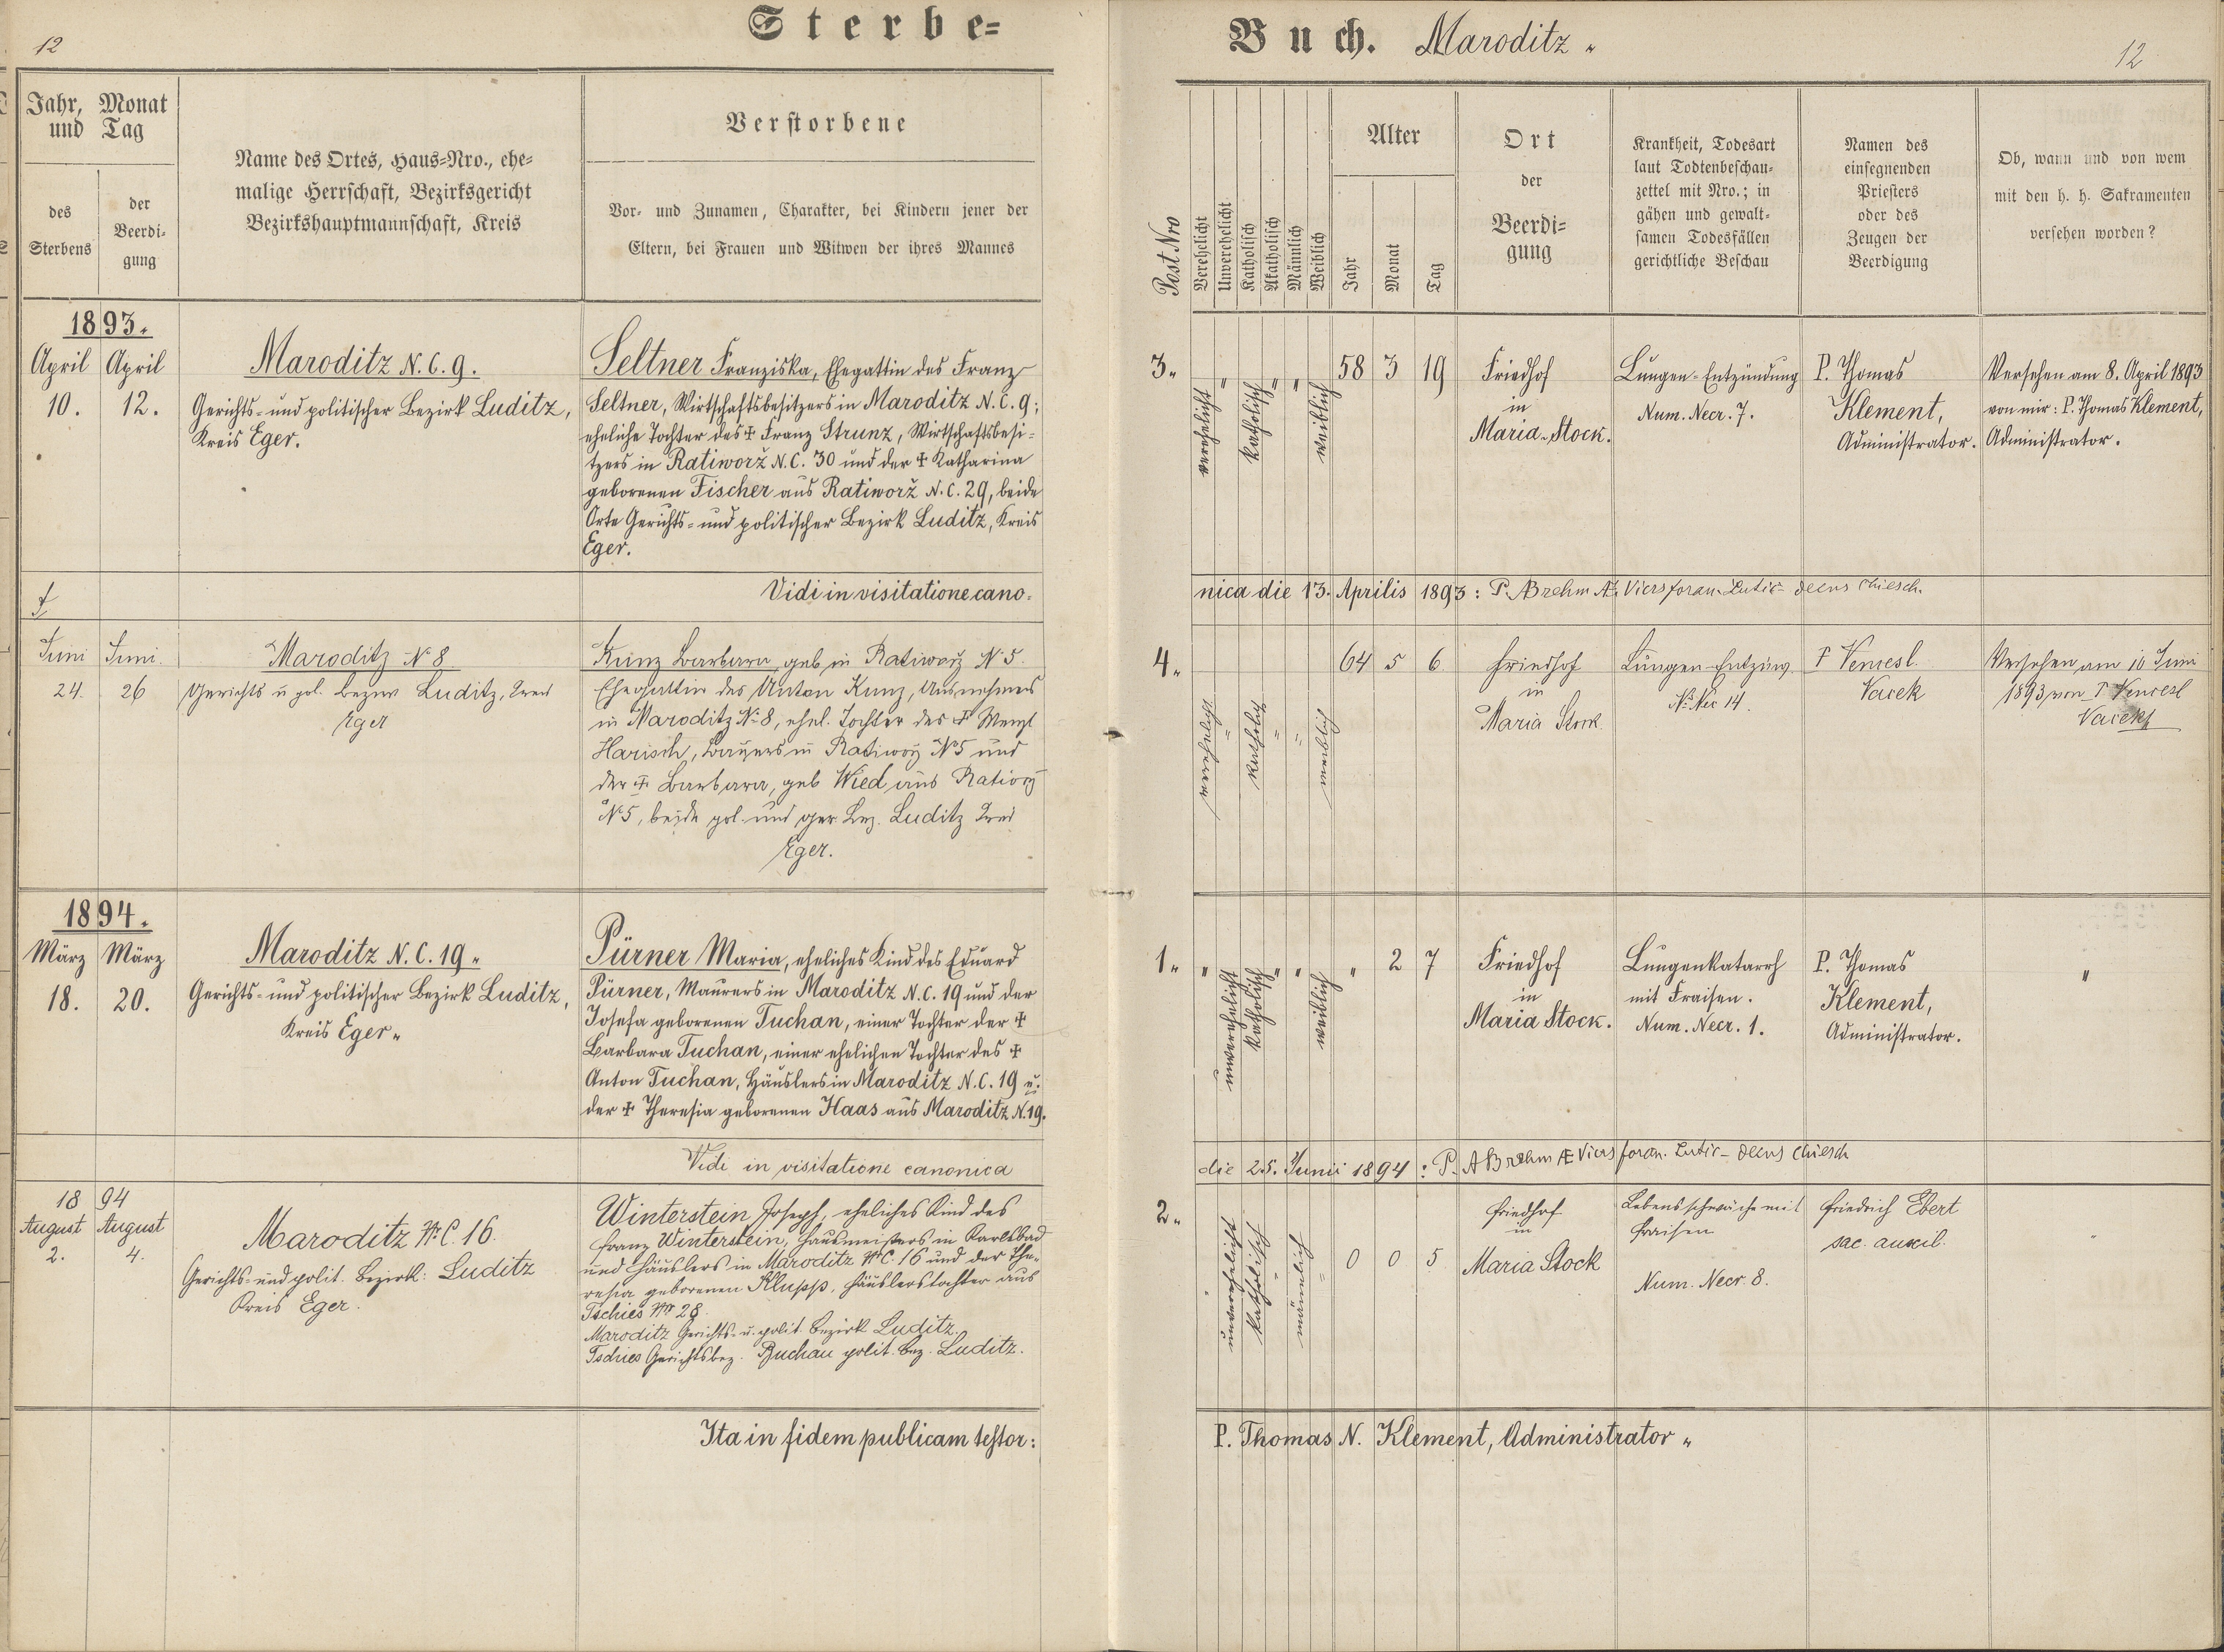 Sterbe-
Buch. Maroditz
12
12
Jahr, Monat
und Tag
des
Sterbens
der
Beerdi-
gung
Name des Ortes, Haus-Nro., ehe-
malige Herrschaft, Bezirksgericht
Bezirkshauptmannschaft, Kreis
Verstorbene
Vor- und Zunamen, Charakter, bei Kindern jener der
Eltern, bei Frauen und Witwen der ihres Mannes
Post Nro
Verehelicht
Unverehelicht
Katholisch
Akatholisch
Männlich
Weiblich
Alter
Jahr
Monat
Tag
Ort
der
Beerdi-
gung
Krankheit, Todesart
laut Todtenbeschau-
zettel mit Nro.; in
gähen und gewalt-
samen Todesfällen
gerichtliche Beschau
Namen des
einsegnenden
Priesters
oder des
Zeugen der
Beerdigung
Ob, wann und von wem
mit den h. h. Sakramenten
versehen worden?
1893.
April April
10. 12.
Maroditz N.C. 9.
Gerichts- und politischer Bezirk Luditz,
Kreis Eger.
Seltner Franziska, Ehegattin des Franz
Seltner, Wirtschaftsbesitzers in Maroditz N.C. 9;
eheliche Tochter des ✝ Franz Strunz, Wirtschaftsbesi-
tzers in Ratiworž N.C. 30 und der ✝ Katharina
geborenen Fischer aus Ratiworž N.C. 29, beide
Orte Gerichts- und politischer Bezirk Luditz, Kreis
Eger.
3. verehelicht " katholisch " " weiblich 58 3 19
Friedhof
in
Maria-Stock.
Lungen-Entzündung
Num. Necr. 7.
P. Thomas
Klement,
Administrator.
Versehen am 8. April 1893
von mir: P. Thomas Klement,
Administrator.
Vidi in visitatione cano-
nica die 13. Aprilis 1893: P. ABrehm
Juni Juni
24. 26
Maroditz N 8
Gerichts u pol. Bezirk Luditz, Kreis
Eger
Kunz Barbara geb in Ratiworz N 5.
Ehegattin des Anton Kunz, Ausnehmers
in Maroditz N 8, ehel. Tochter des ✝ Wenzl
Harisch, Bauers in Ratiworz N5 und
der ✝ Barbara, geb Wied aus Ratiorz
N 5, beide pol. und ger. Bez. Luditz Kreis
Eger.
4. verehelicht " katholisch " " weiblich 64 5 6
Friedhof
in
Maria Stock
Lungen-Entzünd.
N. Nec 14.
P Vencesl.
Vacek
Versehen am 16 Juni
1893 von P Vencesl
Vacek
1894.
März März
18. 20.
Maroditz N.C. 19
Gerichts- und politischer Bezirk Luditz,
Kreis Eger
Pürner Maria, eheliches Kind des Eduard
Pürner, Maurers in Maroditz N.C. 19 und der
Josefa geborenen Tuchan, einer Tochter der ✝
Barbara Tuchan, einer ehelichen Tochter des ✝
Anton Tuchan, Häuslers in Maroditz N.C. 19 u.
der ✝ Theresia geborenen Haas aus Maroditz N. 19.
1. " unverehelicht katholisch " " weiblich " 2 7
Friedhof
in
Maria Stock.
Lungenkatarrh
mit Fraisen.
Num. Necr. 1.
P. Thomas
Klement,
Administrator.
"
Vidi in visitatione canonica
die 25. Junii 1894: P. ABrehm
1894
August August
2. 4.
Maroditz Nr C. 16.
Gerichts- und polit. Bezirk: Luditz
Kreis Eger.
Winterstein Joseph, eheliches Kind des
Franz Winterstein, Hausmeisters in Karlsbad
und Häuslers in Maroditz Nr C. 16 und der The-
resia geborenen Klupp, Häuslerstochter aus
Tschies Nr 28.
Maroditz Gerichts- u. polit. Bezirk Luditz.
Tschies Gerichtsbez. Buchau polit. Bez. Luditz.
2. " unverehelicht katholisch " männlich " 0 0 5
Friedhof
in
Maria Stock
Lebensschwäche mit
Fraisen
Num. Necr. 8.
Friedrich Ebert
sac. auxil.
"
Ita in fidem publicam testor:
P. Thomas N. Klement, Administrator